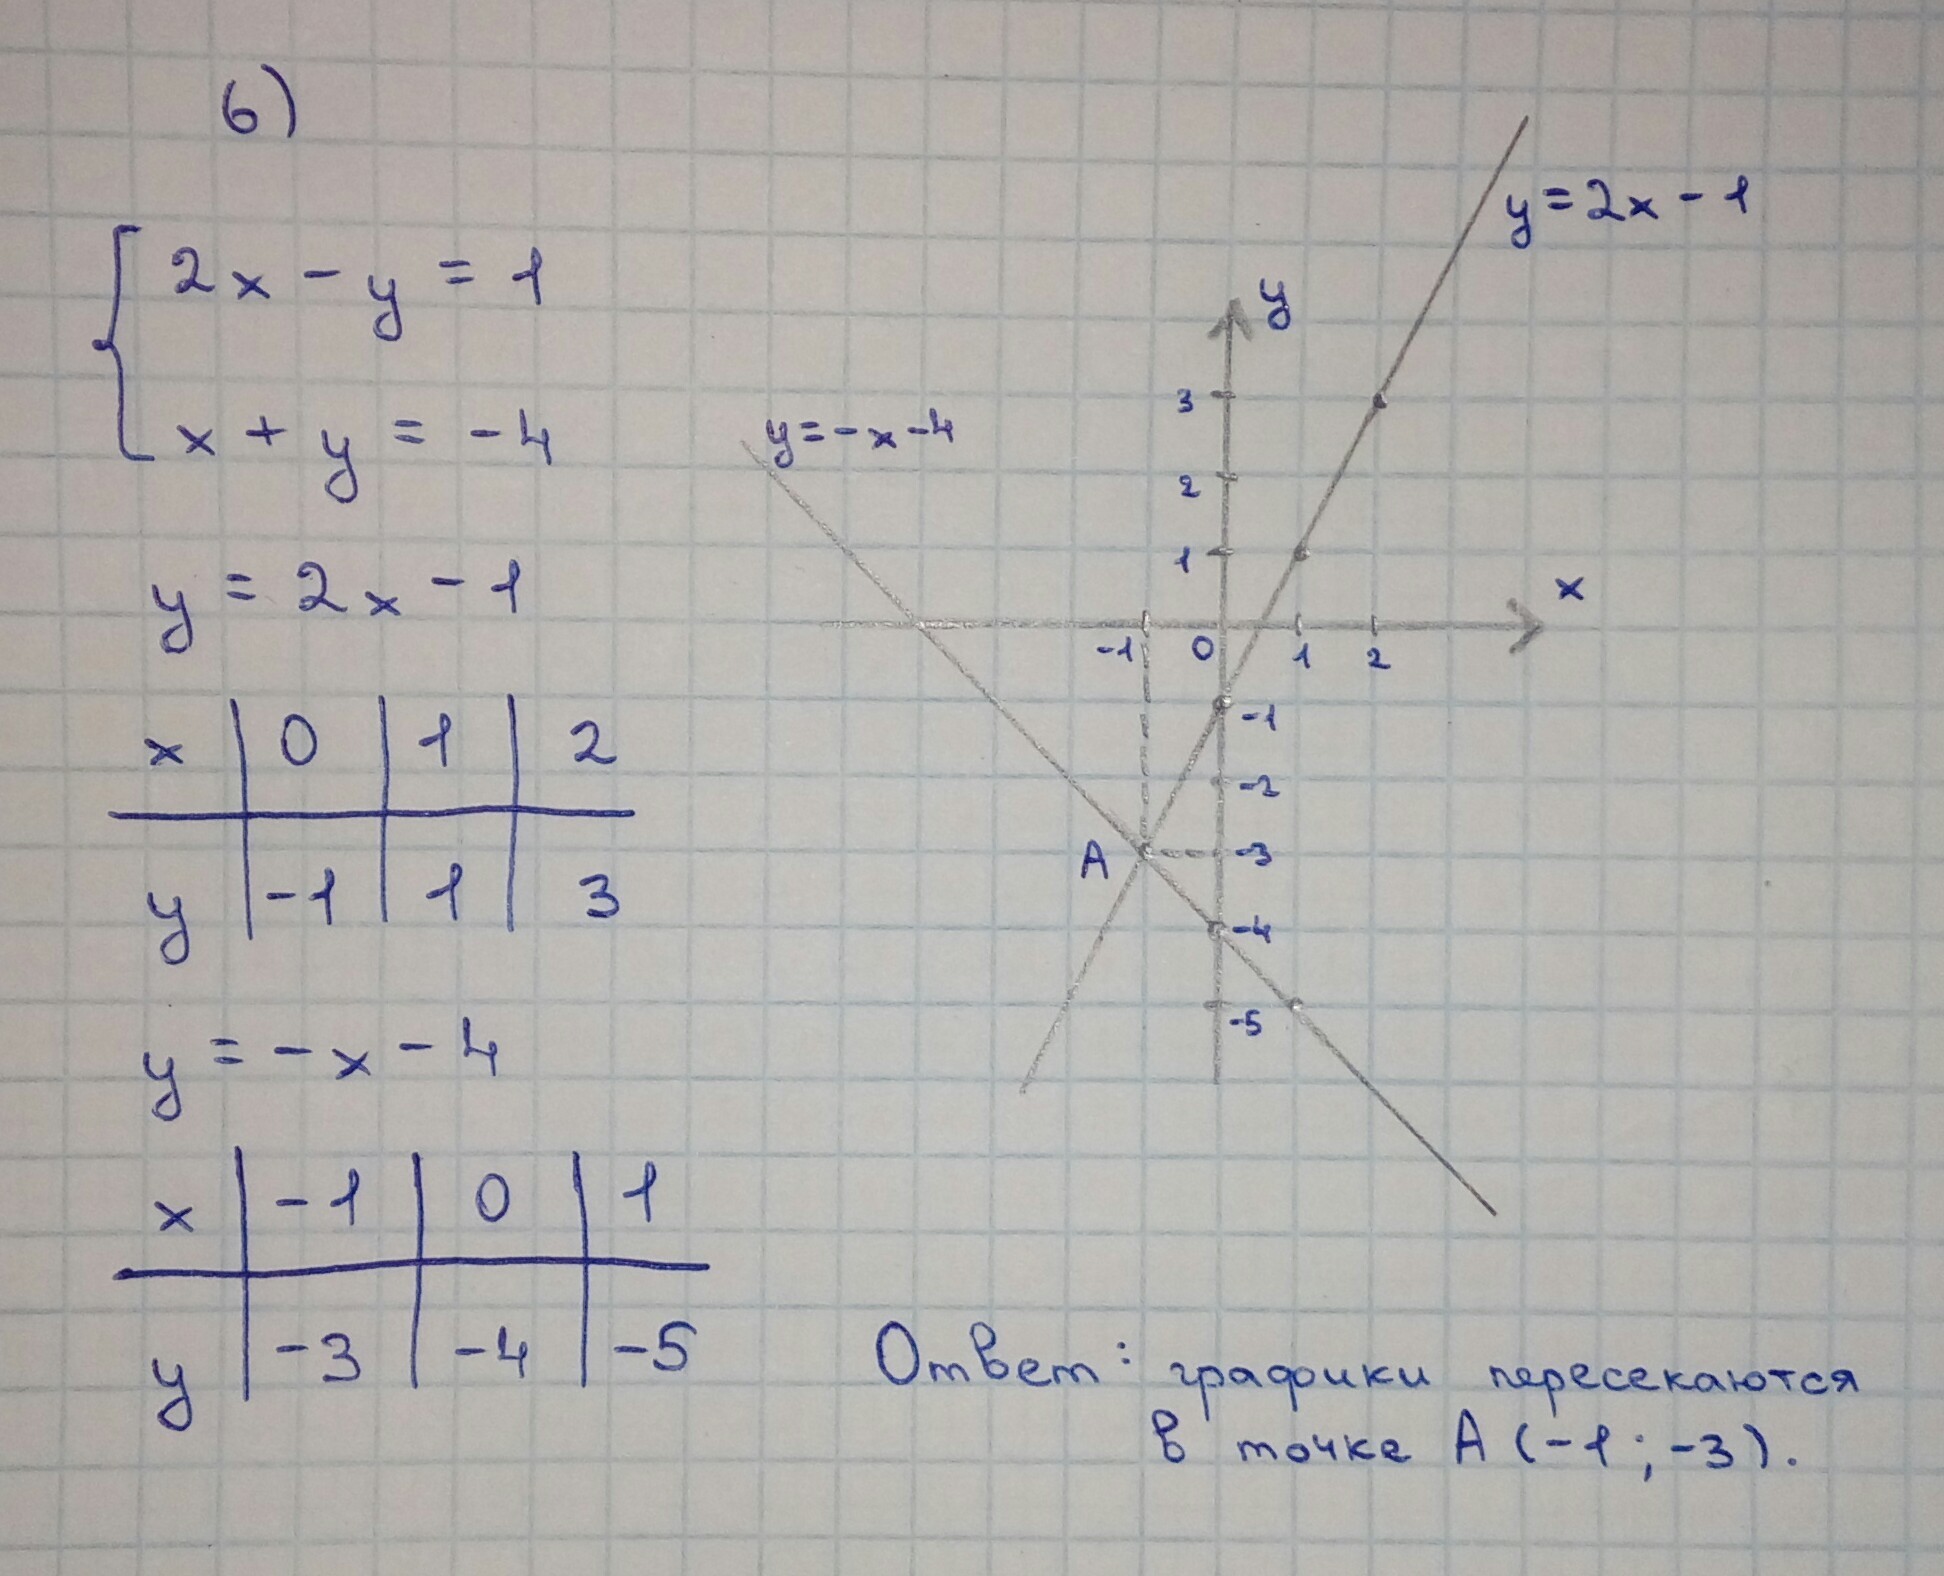 6)
2x - y = 1
x + y = -4
y = 2x - 1
x | 0 | 1 | 2
y | -1 | 1 | 3
y = -x - 4
x | -1 | 0 | 1
y | -3 | -4 | -5
y = 2x - 1
y
y = -x - 4
3
2
1
x
-1 0 1 2
-1
-2
A -3
-4
-5
Ответ: графики пересекаются
в точке А (-1; -3).